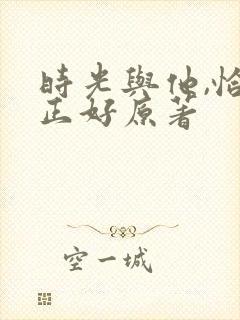 時光與他,恰
正好原著
空一城